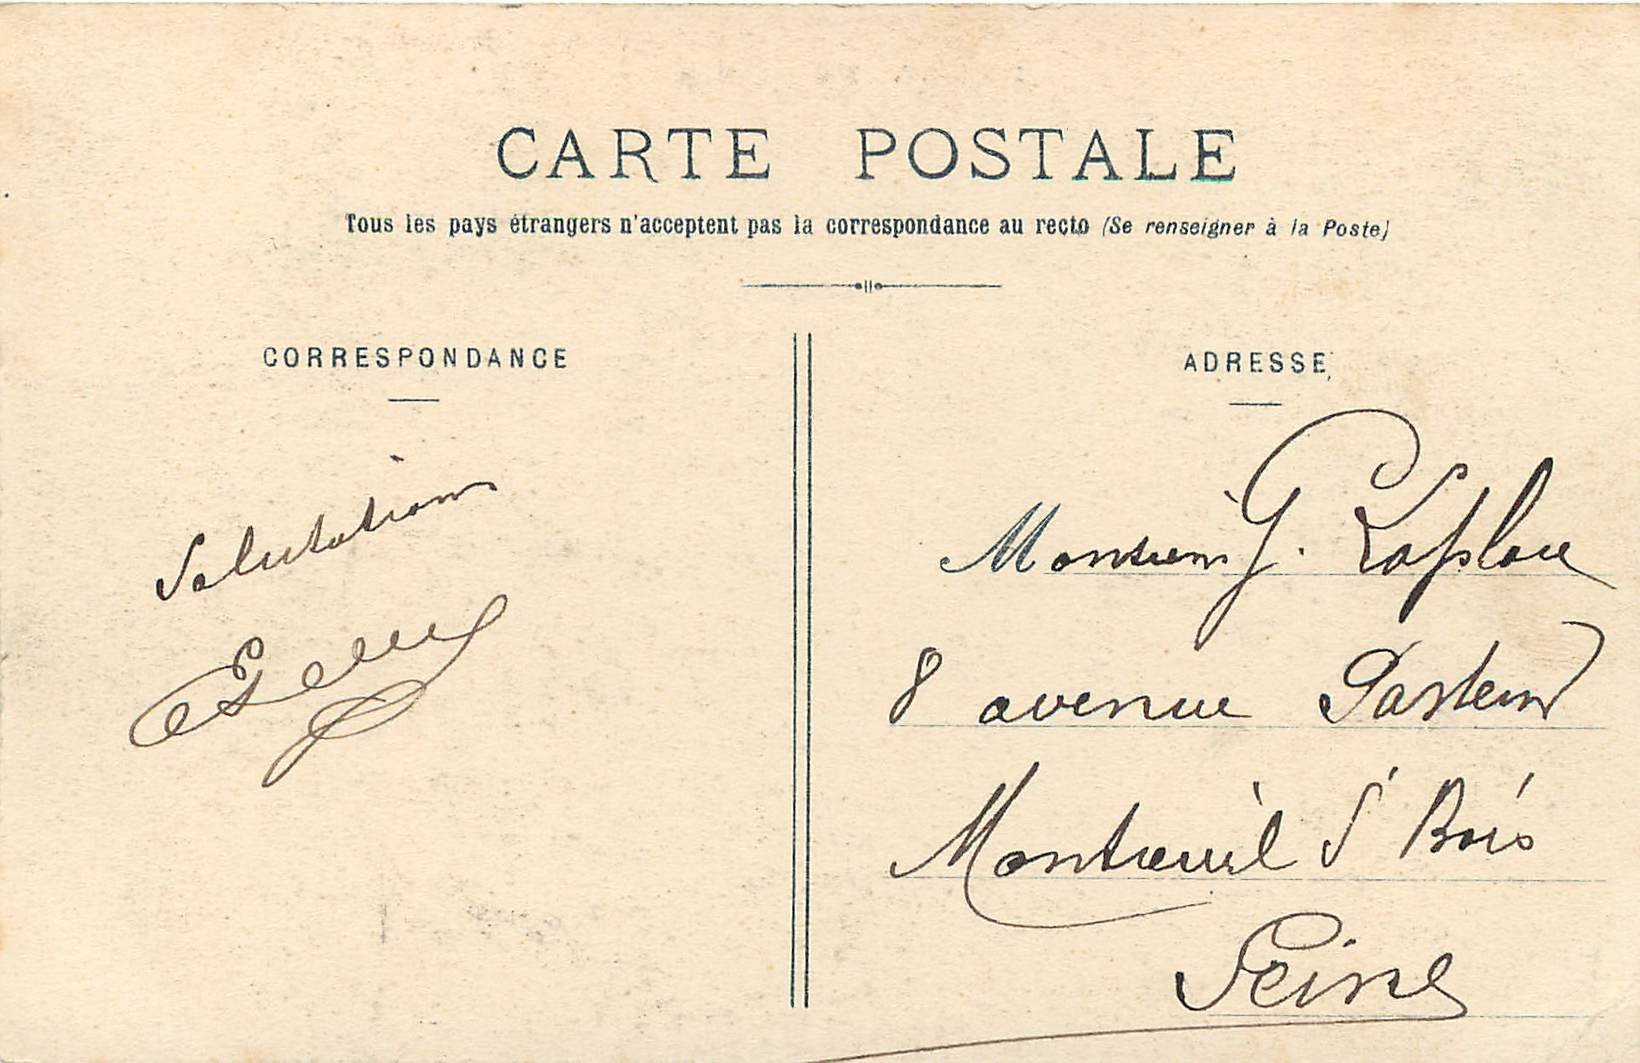 CARTE POSTALE
Tous les pays étrangers n'acceptent pas la correspondance au recto (Se renseigner à la Poste)
CORRESPONDANCE
Salutations
ADRESSE
Monsieur G. Laplace
8 avenue Pasteur
Montreuil s' Bois
Seine